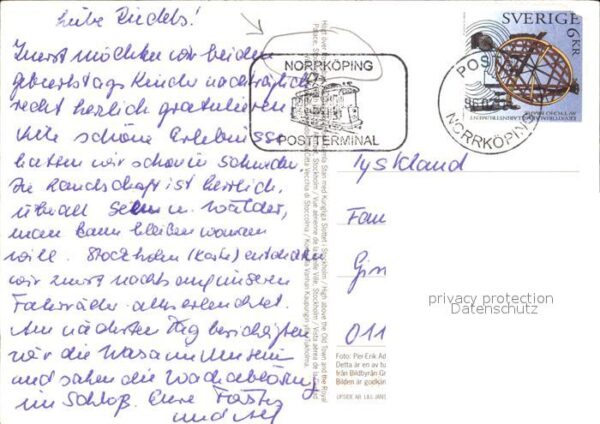 Liebe Zindels!
Zuerst möchten wir beiden
Geburtstags Kinder nachträglich
recht herzlich gratulieren
Viele schöne Erlebnisse
hatten wir schon in Schweden.
Die Landschaft ist herrlich,
überall Seen u. Wälder,
man kann bleiben wo man
will. Stockholm (Karte) entdeckten
wir zuerst nachts auf unseren
Fahrrädern alles erleuchtet.
Am nächsten Tag besichtigten
wir die Wasa im Museum
und sahen die Wachablösung
im Schloß. Eure
und
NORRKÖPING
POSTTERMINAL
SVERIGE
6 KR
POSTEN
NORRKÖPING
Tyskland
Fam
011
privacy protection
Datenschutz
Foto: Pier Erik Ad
Detta är en av tu
från Bildbyrån Gr
Bilden är godkän